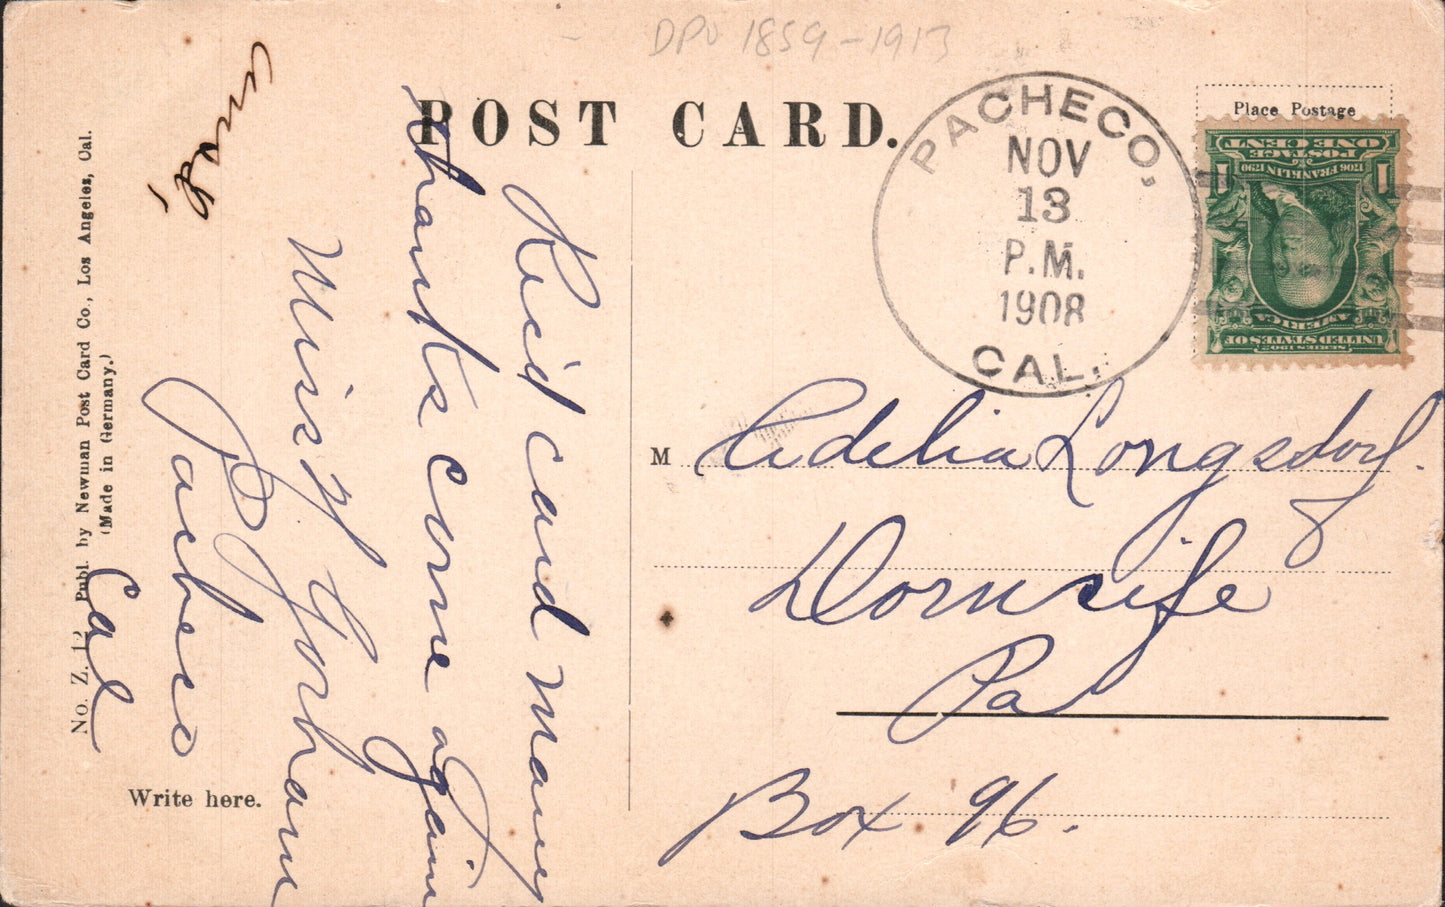 DPO 1859-1913
POST CARD.
PACHECO,
NOV
13
P.M.
1908
CAL.
Place Postage
ONE CENT
POSTAGE
1706 FRANKLIN 1790
1 1
AMERICA
UNITED STATES OF
SERIES 1902
M Adelia Longsdorf.
Dornsife
Pa
Box 96.
Rec'd card many
thanks come again
Miss Gorham
Pacheco
Cal
No. Z. 12 Publ. by Newman Post Card Co., Los Angeles, Cal.
(Made in Germany.)
Write here.